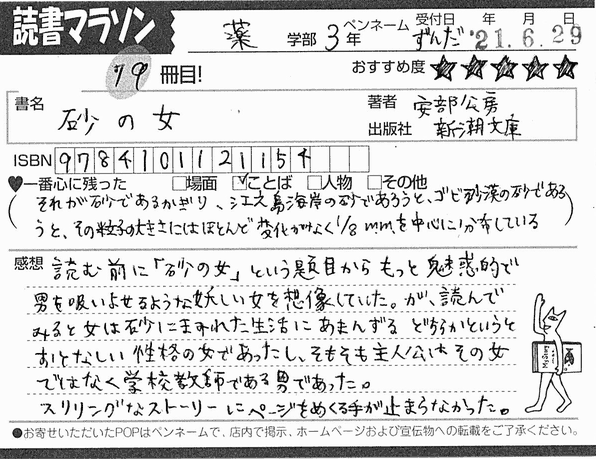 読書マラソン
薬 学部 3年 ペンネーム ずんだ 受付日 年 月 日 '21.6.29
79 冊目! おすすめ度 ★★★★★
書名 砂の女
著者 安部公房
出版社 新潮文庫
ISBN 9784101121154
♥一番心に残った □場面 ☑ことば □人物 □その他
(それが砂であるかぎり、江之島海岸の砂であろうと、ゴビ砂漠の砂であろ
うと、その粒子の大きさにはほとんど変化がなく1/8m.m.を中心に分布している)
感想 読む前に「砂の女」という題目からもっと魅惑的で
男を吸いよせるような妖しい女を想像していた。が、読んで
みると女は砂にまみれた生活にあまんずるどちらかというと
おとなしい性格の女であったし、そもそも主人公はその女
ではなく学校教師である男であった。
スリリングなストーリーにページをめくる手が止まらなかった。
●お寄せいただいたPOPはペンネームで、店内で掲示、ホームページおよび宣伝物への転載をご了承ください。